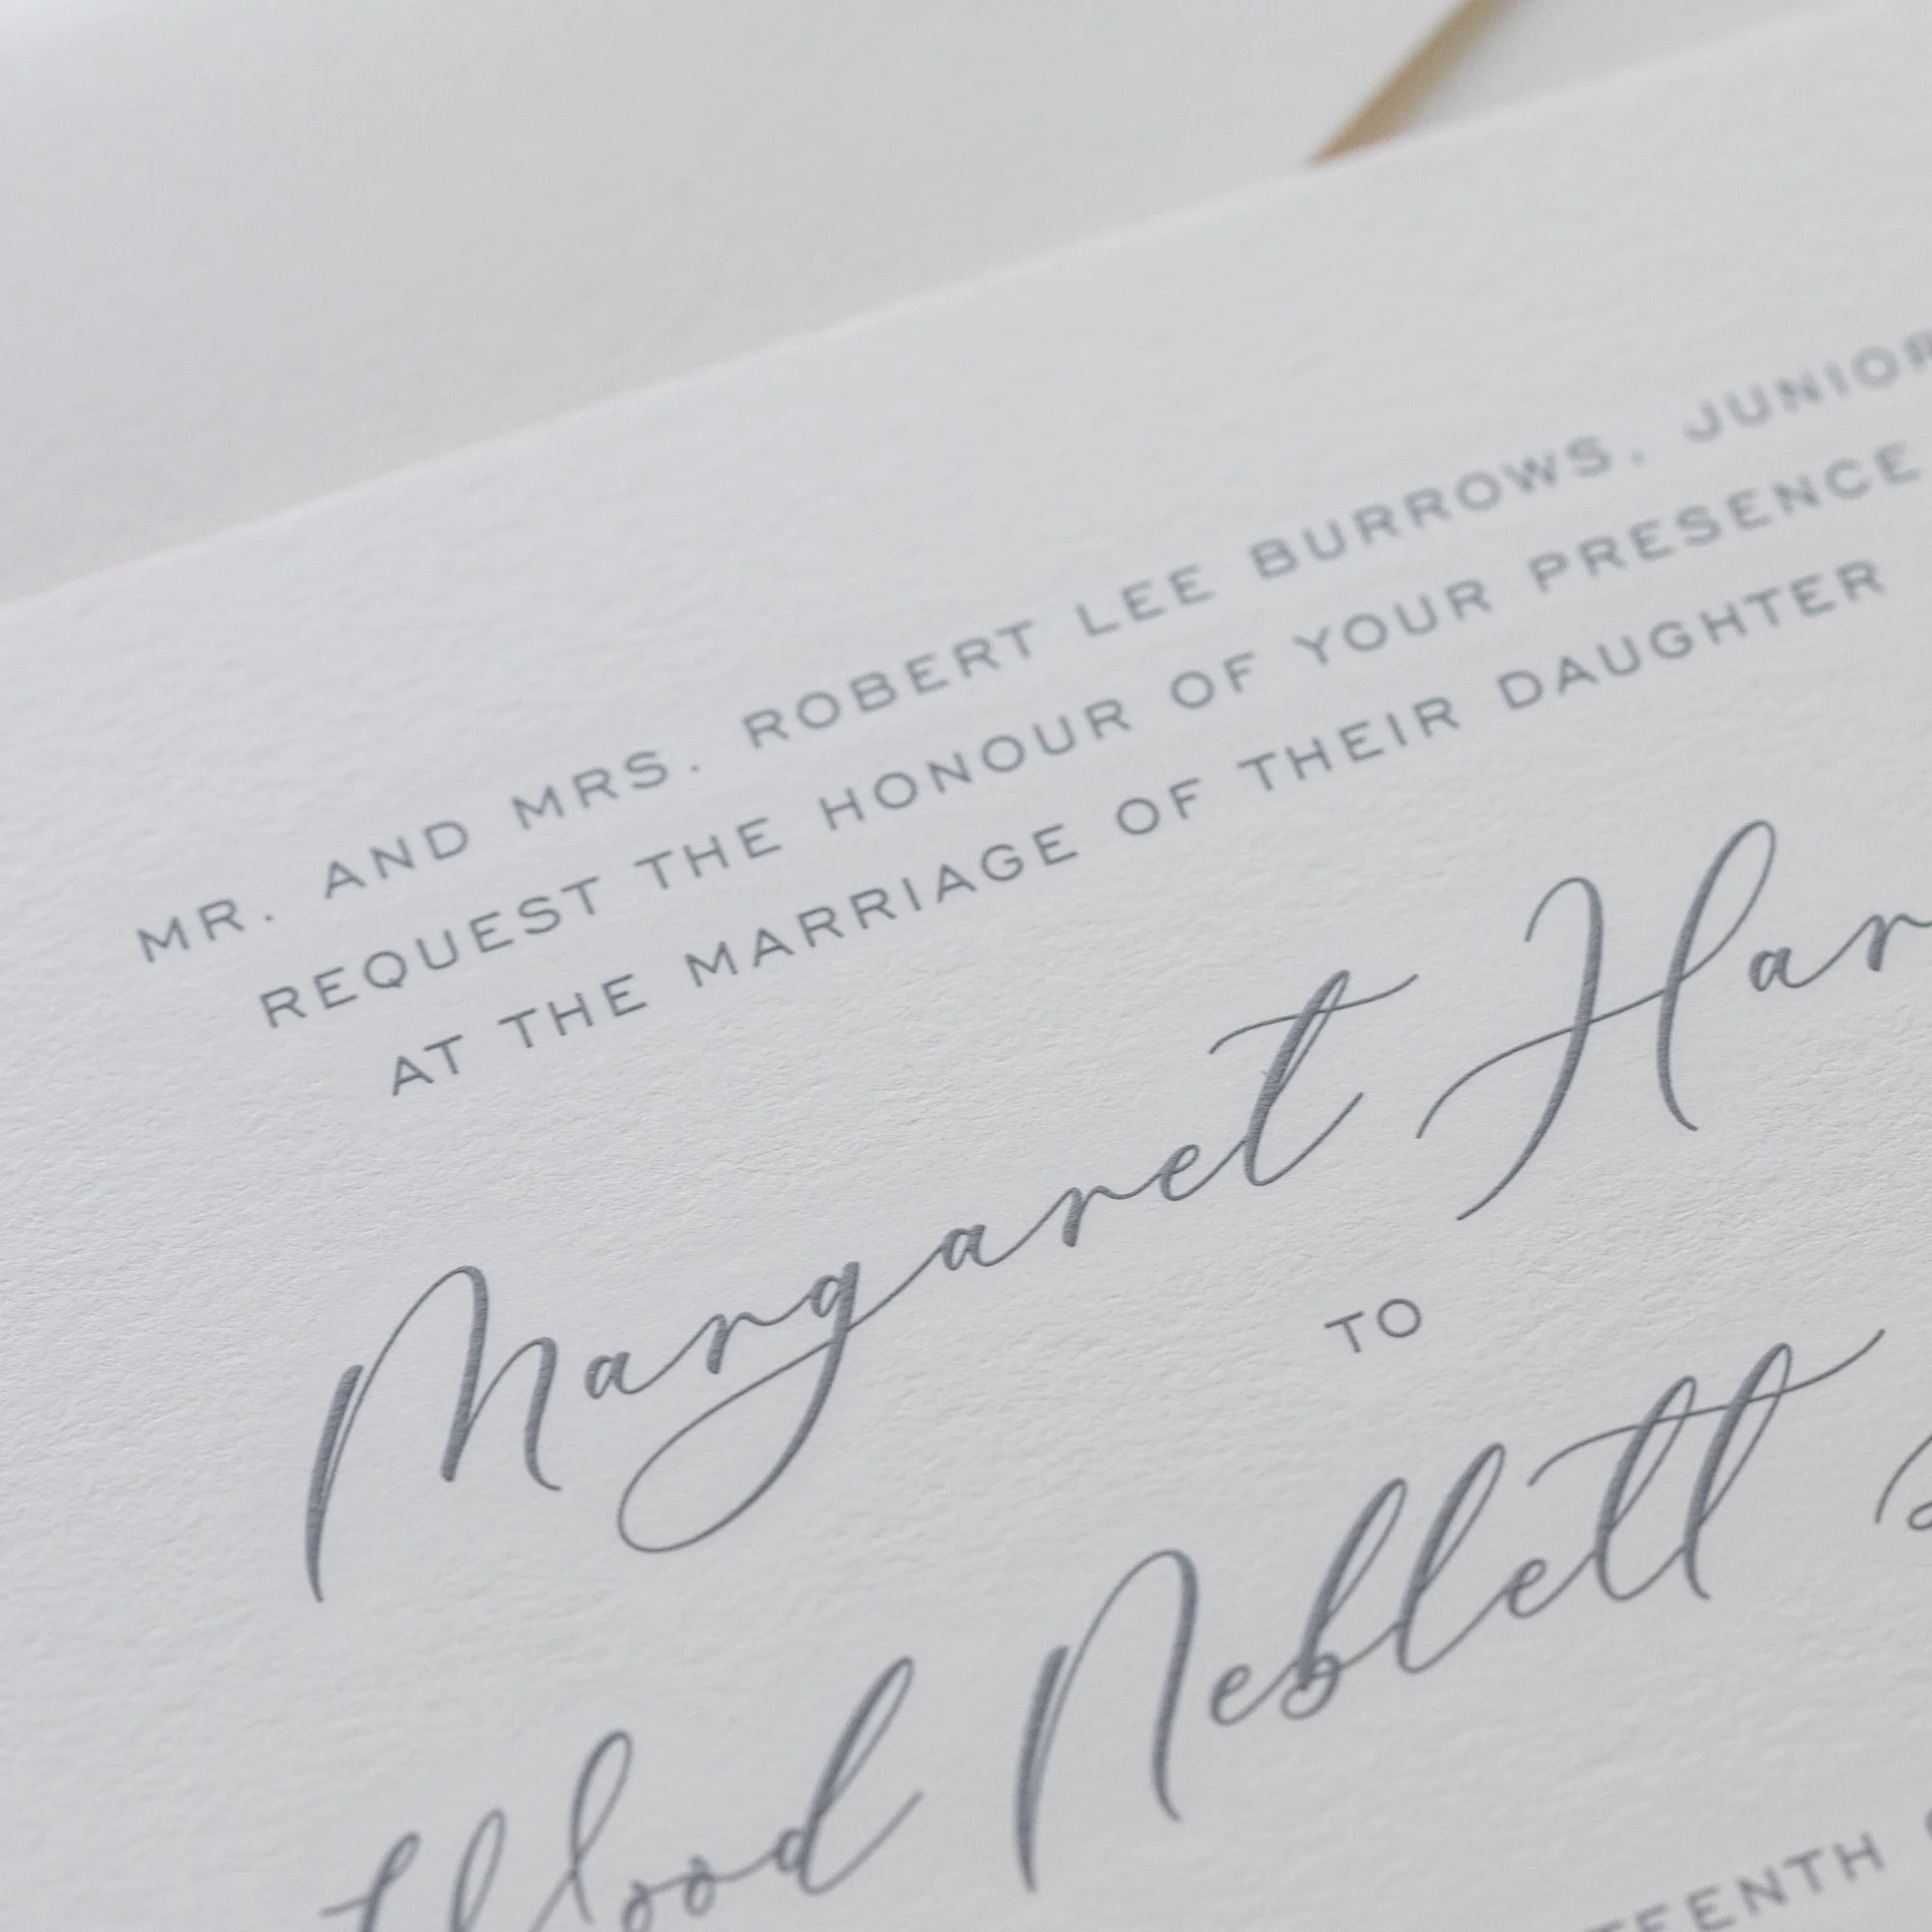 MR. AND MRS. ROBERT LEE BURROWS, JUNIOR
REQUEST THE HONOUR OF YOUR PRESENCE
AT THE MARRIAGE OF THEIR DAUGHTER
Margaret Har
TO
Wood Neblett